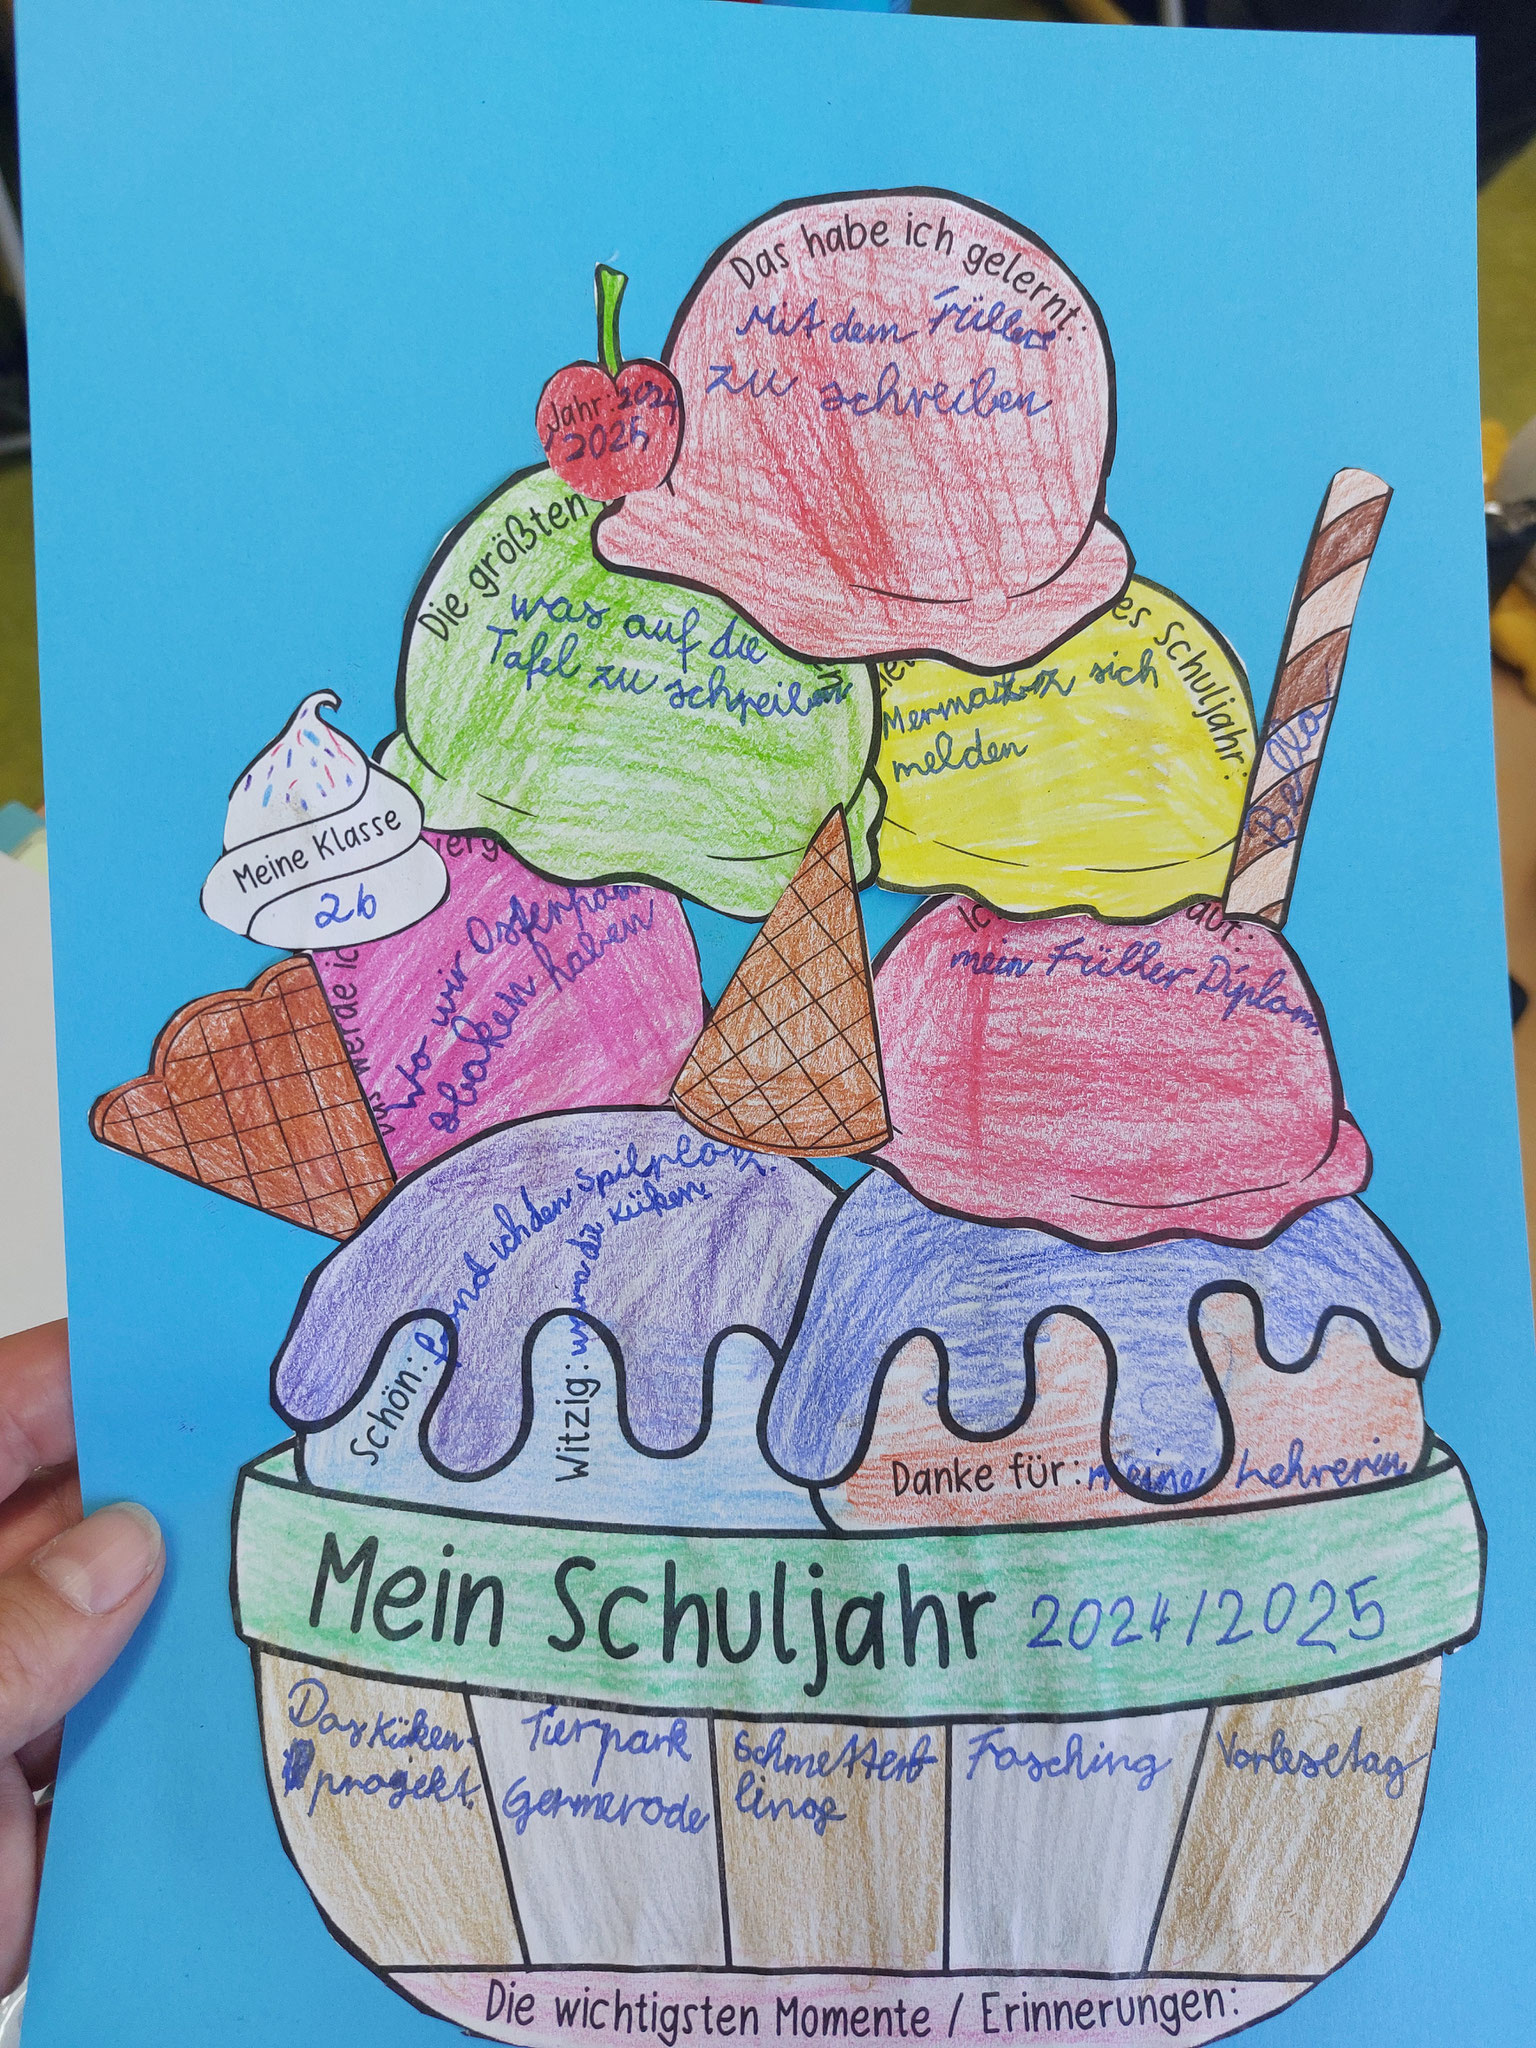 Das habe ich gelernt:
Mit dem Füller
zu schreiben
Jahr: 2024
2025
Die größten
was auf die
Tafel zu schreiben
es Schuljahr:
sich
melden
Bella
Meine Klasse
2b
werde ic
Wo wir Osterhasen
gebaken haben
auf:
mein Füller Diplom
Schön: fand ich den Spilplatz.
Witzig: die Küken
Danke für: meiner Lehrerin
Mein Schuljahr 2024/2025
Das Küken-
projekt.
Tierpark
Germerode
Schmetterl
linge
Fasching
Vorlesetag
Die wichtigsten Momente / Erinnerungen: